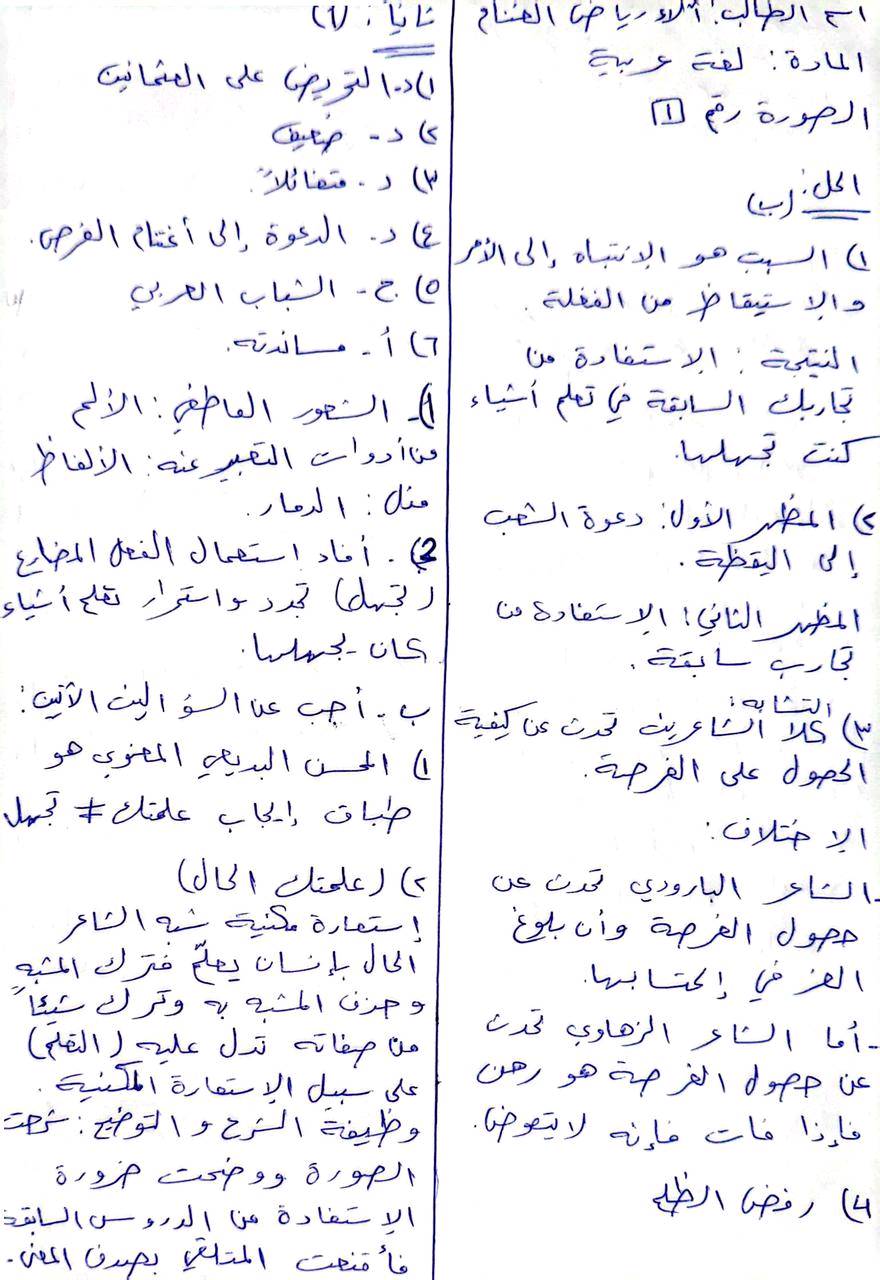 اسم الطالب: آلاء رياض الغنام
المادة: لغة عربية
الصورة رقم [1]
الحل:
(ب)
١) السبب هو الانتباه إلى الأمر
والاستيقاظ من الغفلة.
النتيجة: الاستفادة من
تجاربك السابقة في تعلم أشياء
كنت تجهلها.
٢) المظهر الأول: دعوة الشعب
إلى اليقظة.
المظهر الثاني: الاستفادة من
تجارب سابقة.
التشابه:
٣) كلا الشاعرين تحدث عن كيفية
الحصول على الفرصة.
الاختلاف:
- الشاعر البارودي تحدث عن
حصول الفرصة وأن بلوغ
العز في إكتسابها.
- أما الشاعر الزهاوي تحدث
عن حصول الفرصة هو رهن
فإذا فات فإنه لا يتعوض.
٤) رفض الظلم
ثانياً: (٦)
١) د- التحريض على العثمانين
٢) د - ضعيف
٣) د - متفائلاً.
٤) د. الدعوة إلى أغتنام الفرص.
٥) ج - الشباب العربي
٦) أ - مساندته.
1)- الشعور العاطفي: الألم
من أدوات التعبير عنه: الألفاظ
مثل: الدمار.
2) - أفاد استعمال الفعل المضارع
(تجهل) تجدد واستمرار تعلم أشياء
كان يجهلها.
ب - أجب عن السؤالين الآتين:
١) المحسن البديعي المعنوي هو
طباق إيجاب علمتك ≠ تجهل
٢) (علمتك الحال)
إستعارة مكنية شبه الشاعر
الحال بإنسان يعلّم فترك المشبه
وحذف المشبه به وترك شيئاً
من صفاته تدل عليه (التعلم)
على سبيل الاستعارة المكنية.
وظيفة الشرح والتوضيح: شرحت
الصورة ووضحت ضرورة
الاستفادة من الدروس السابقة
فأقنعت المتلقي بصدق المعنى.